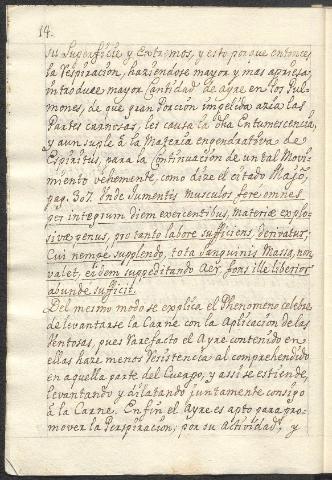 14.
su superficie, y Extremos, y esto porque entonces
la respiracion, haziendose mayor y mas apriesa,
introduce mayor Cantidad de ayre en los Pul-
mones, de que gran Porcion ingerida azia las
Partes carnosas, les causa la dha Entumescencia,
y aun suple à la Materia engendrativa de
Espiritus, para la Continuacion de un tal Movi-
miento vehemente, como dize el citado Mayõ,
pag. 307. Inde Jumentis musculos fere omnes
per integrum diem exercentibus, materiæ explo-
sivæ genus, pro tanto labore sufficiens, derivatur;
Cui nempe supplendo, tota sanguinis Massa, non
valet, eidem suppeditando Aer, fons ille liberior
abunde sufficit.
Del mesmo modo se explica el Phenomeno celebre
de levantarse la Carne con la Aplicacion de las
Ventosas, pues rarefacto el Ayre contenido en
ellas haze menos resistencia al comprehendido
en aquella parte del Cuerpo, y assi se estiende,
levantando y dilatando juntamente consigo
à la Carne. Enfin el Ayre es apto para pro-
mover la Perspiracion, por su Actividad, y